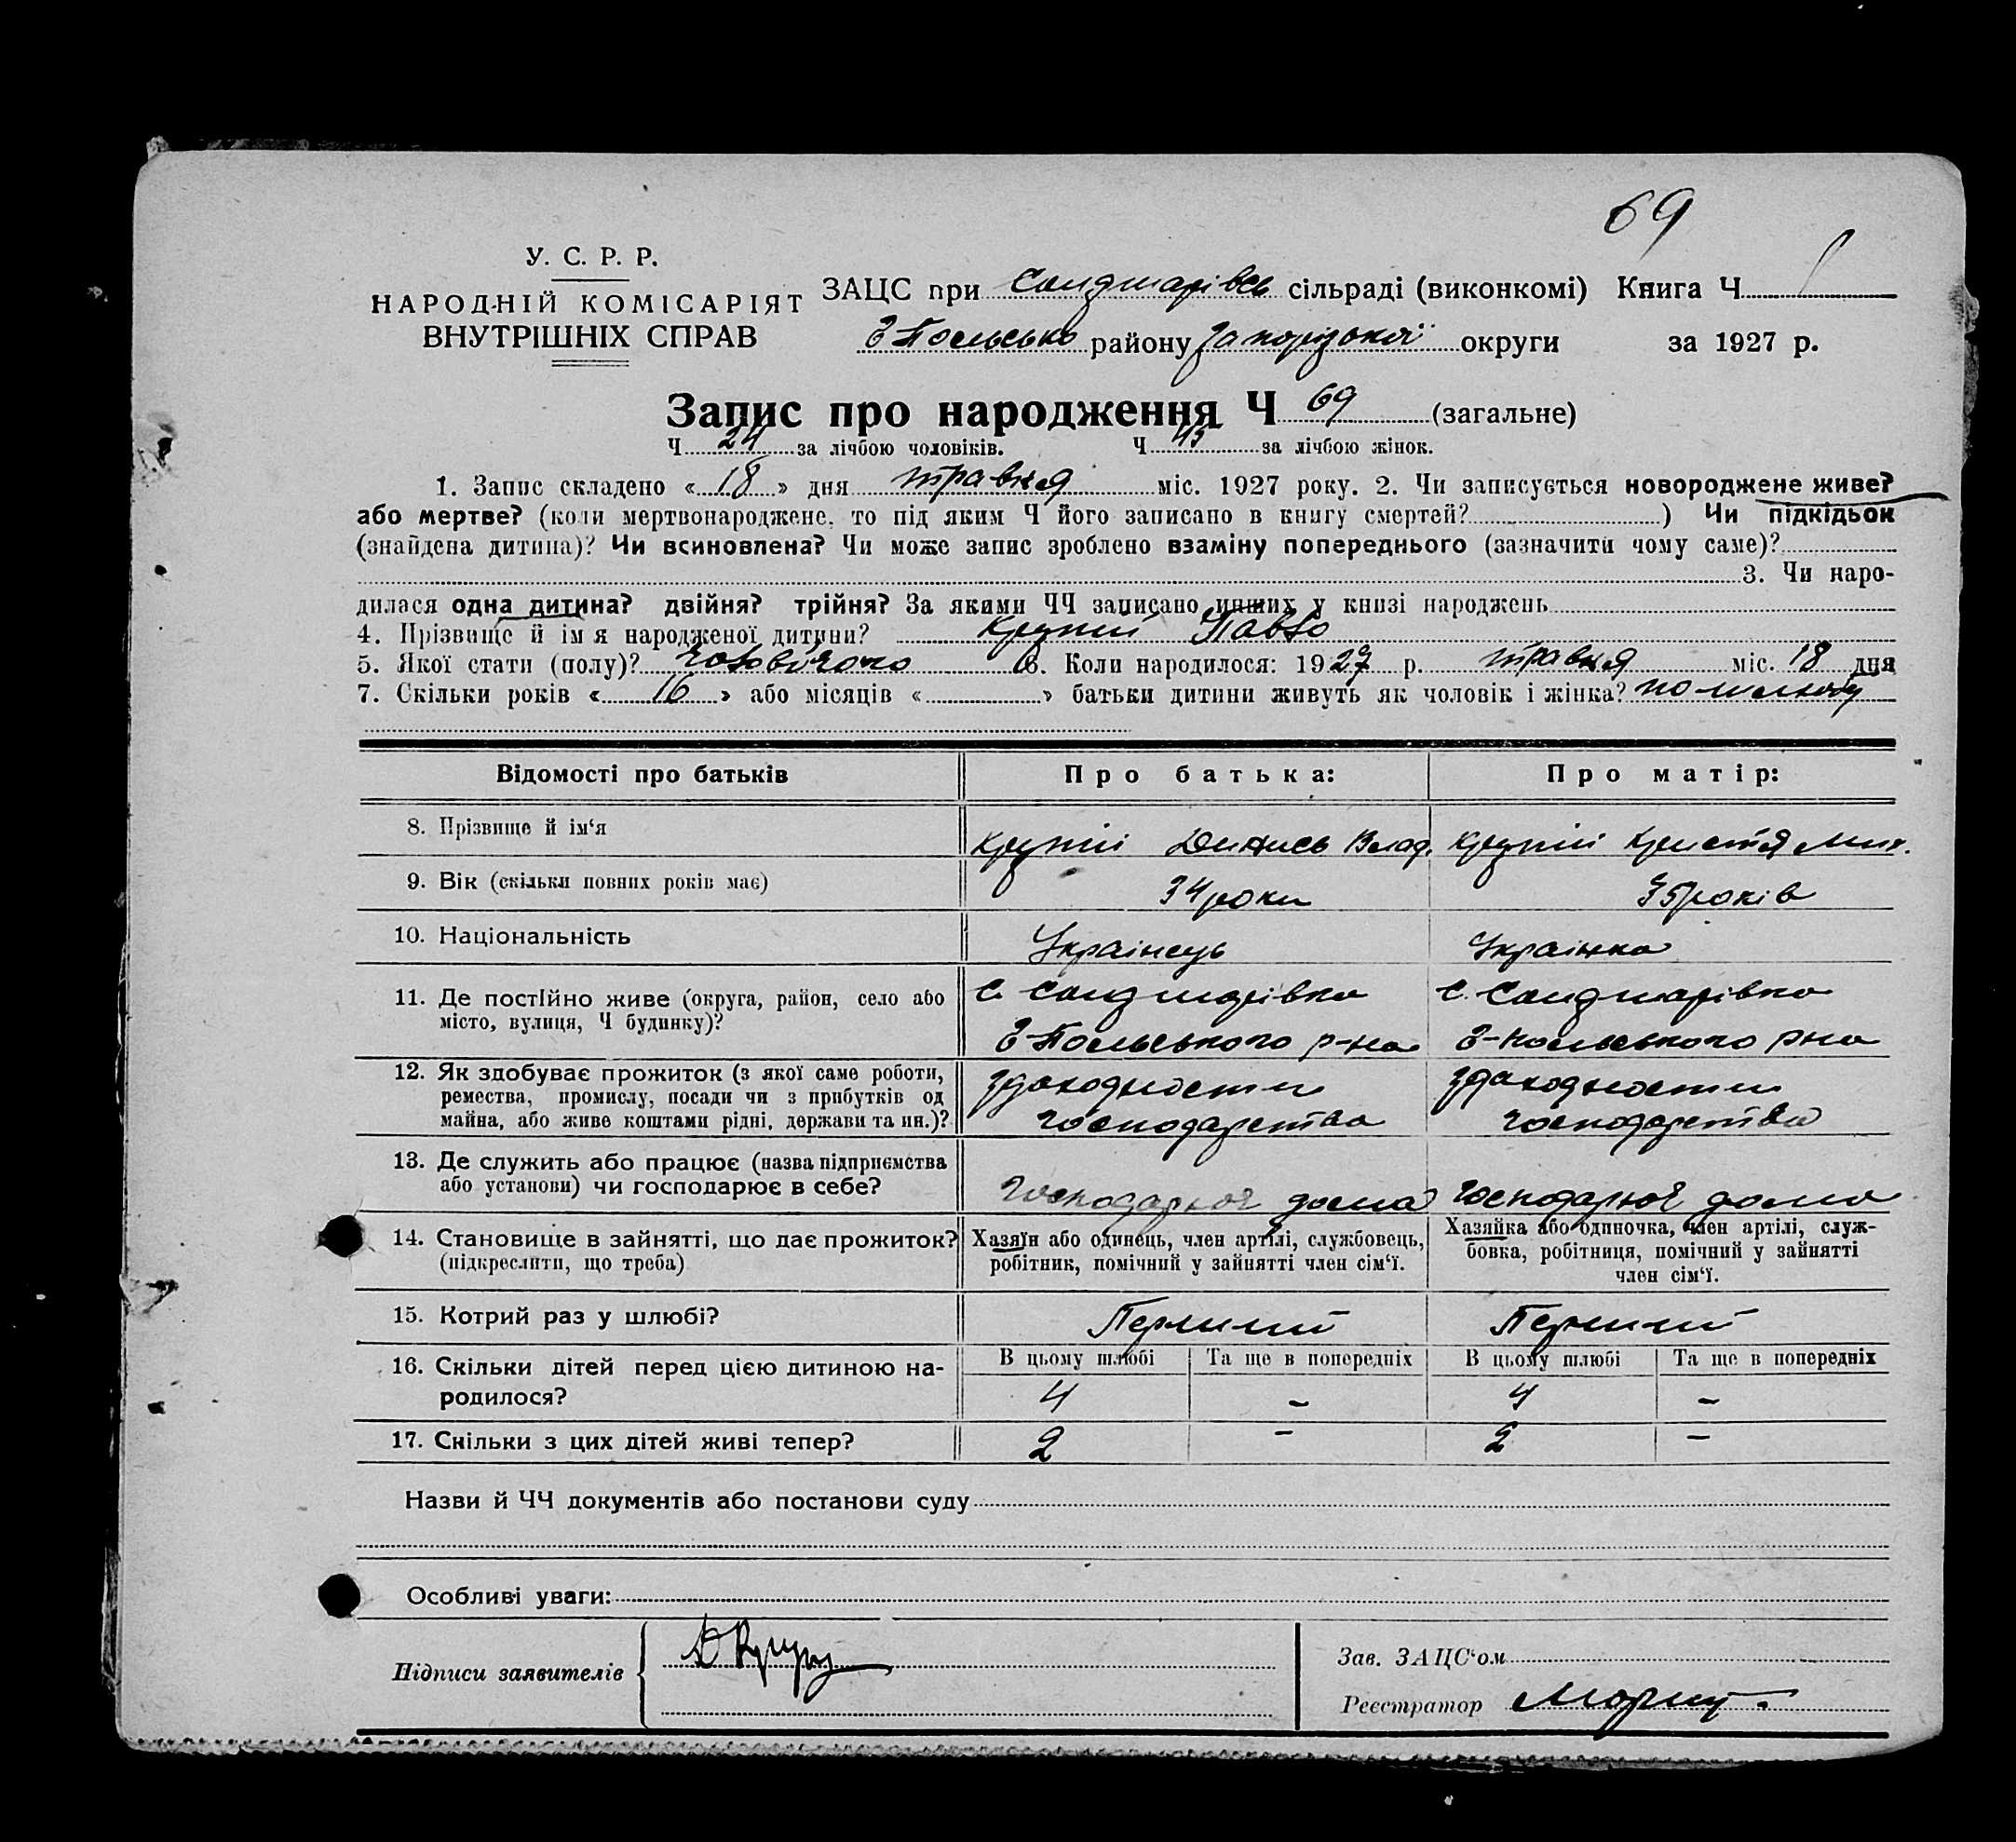 69
У. С. Р. Р.
НАРОДНІЙ КОМІСАРІЯТ
ВНУТРІШНІХ СПРАВ
ЗАЦС при Санджарівсь сільраді (виконкомі) Книга Ч
З Польсько району Запорізької округи за 1927 р.
Запис про народження Ч 69 (загальне)
Ч 24 за лічбою чоловіків. Ч 45 за лічбою жінок.
1. Запис складено « 18 » дня травня міс. 1927 року. 2. Чи записується новороджене живе?
або мертве? (коли мертвонароджене, то під яким Ч його записано в книгу смертей? ) Чи підкідьок
(знайдена дитина)? Чи всиновлена? Чи може запис зроблено взаміну попереднього (зазначити чому саме)?
3. Чи наро-
дилася одна дитина? двійня? трійня? За якими ЧЧ записано инших у книзі народжень
4. Прізвище й ім я народженої дитини? Крупій Павло
5. Якої стати (полу)? чоловічого 6. Коли народилося: 1927 р. травня міс. 18 дня
7. Скільки років « 16 » або місяців « » батьки дитини живуть як чоловік і жінка? по шлюбу
Відомості про батьків Про батька: Про матір:
8. Прізвище й ім‘я Крупій Динись Влад. Крупій Христя Мих.
9. Вік (скільки повних років має) 34 роки 35 років
10. Національність Українець Українка
11. Де постійно живе (округа, район, село або місто, вулиця, Ч будинку)? с. Санджарівка с. Санджарівка
З-Польського р-на З-Польського рна
12. Як здобуває прожиток (з якої саме роботи, ремества, промислу, посади чи з прибутків од майна, або живе коштами рідні, держави та ин.)? здоходности здоходности
господарства господарства
13. Де служить або працює (назва підприємства або установи) чи господарює в себе? Господарює дома Господарює дома
14. Становище в зайнятті, що дає прожиток? (підкреслити, що треба)
Хазяїн або одинець, член артілі, службовець, робітник, помічний у зайнятті член сім‘ї.
Хазяйка або одиночка, член артілі, служ-
бовка, робітниця, помічний у зайнятті
член сім‘ї.
15. Котрий раз у шлюбі? Перший Перший
16. Скільки дітей перед цією дитиною на-
родилося?
В цьому шлюбі Та ще в попередніх В цьому шлюбі Та ще в попередніх
4 – 4 –
17. Скільки з цих дітей живі тепер? 2 – 2 –
Назви й ЧЧ документів або постанови суду
Особливі уваги:
Підписи заявителів
Зав. ЗАЦС‘ом
Реєстратор